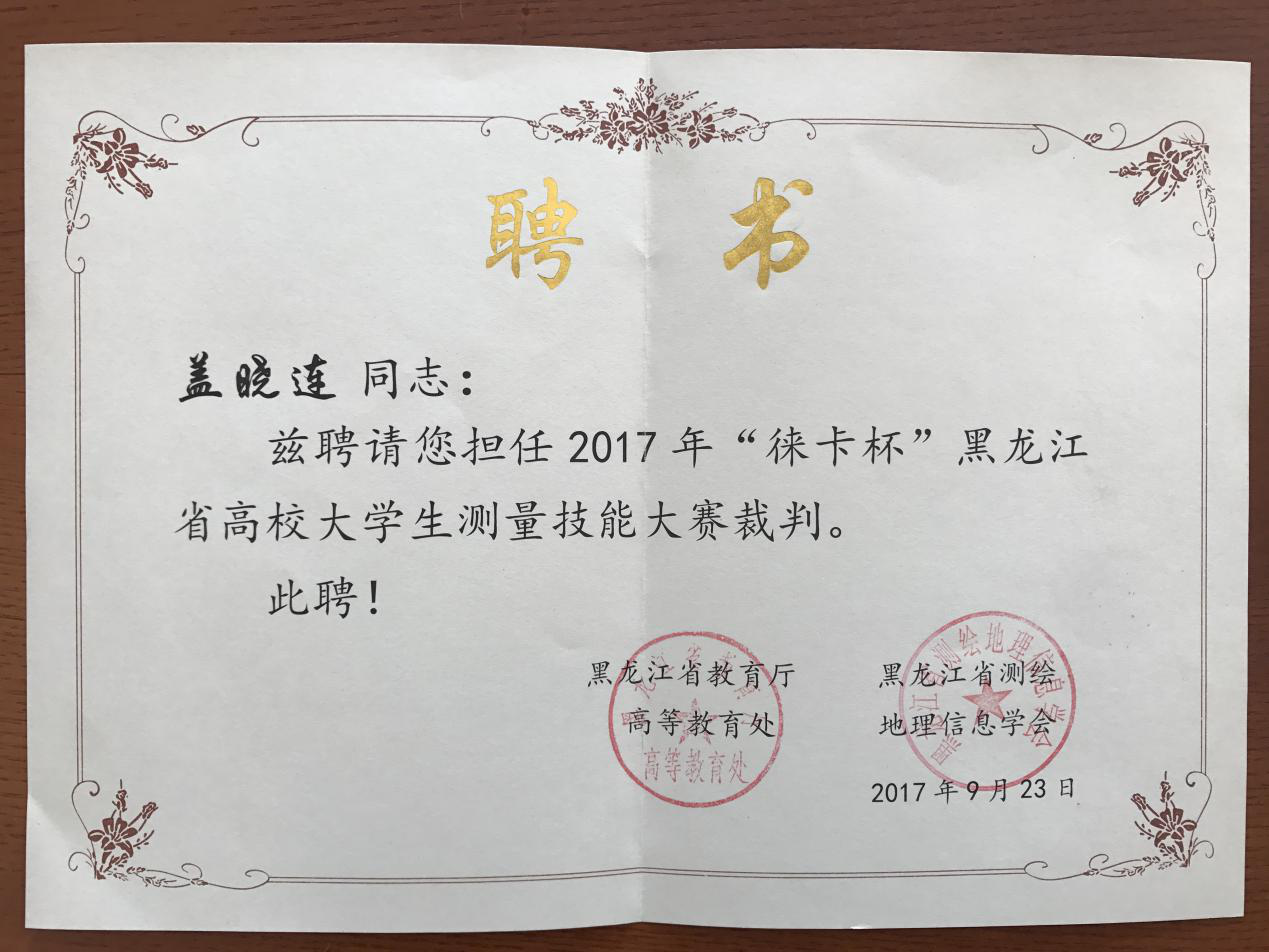 聘 书
盖晓连 同志：
兹聘请您担任2017年“徕卡杯”黑龙江
省高校大学生测量技能大赛裁判。
此聘！
黑龙江省教育厅
高等教育处
黑龙江省测绘
地理信息学会
2017年9月23日
黑龙江省教育厅
高等教育处
黑龙江省测绘地理信息学会